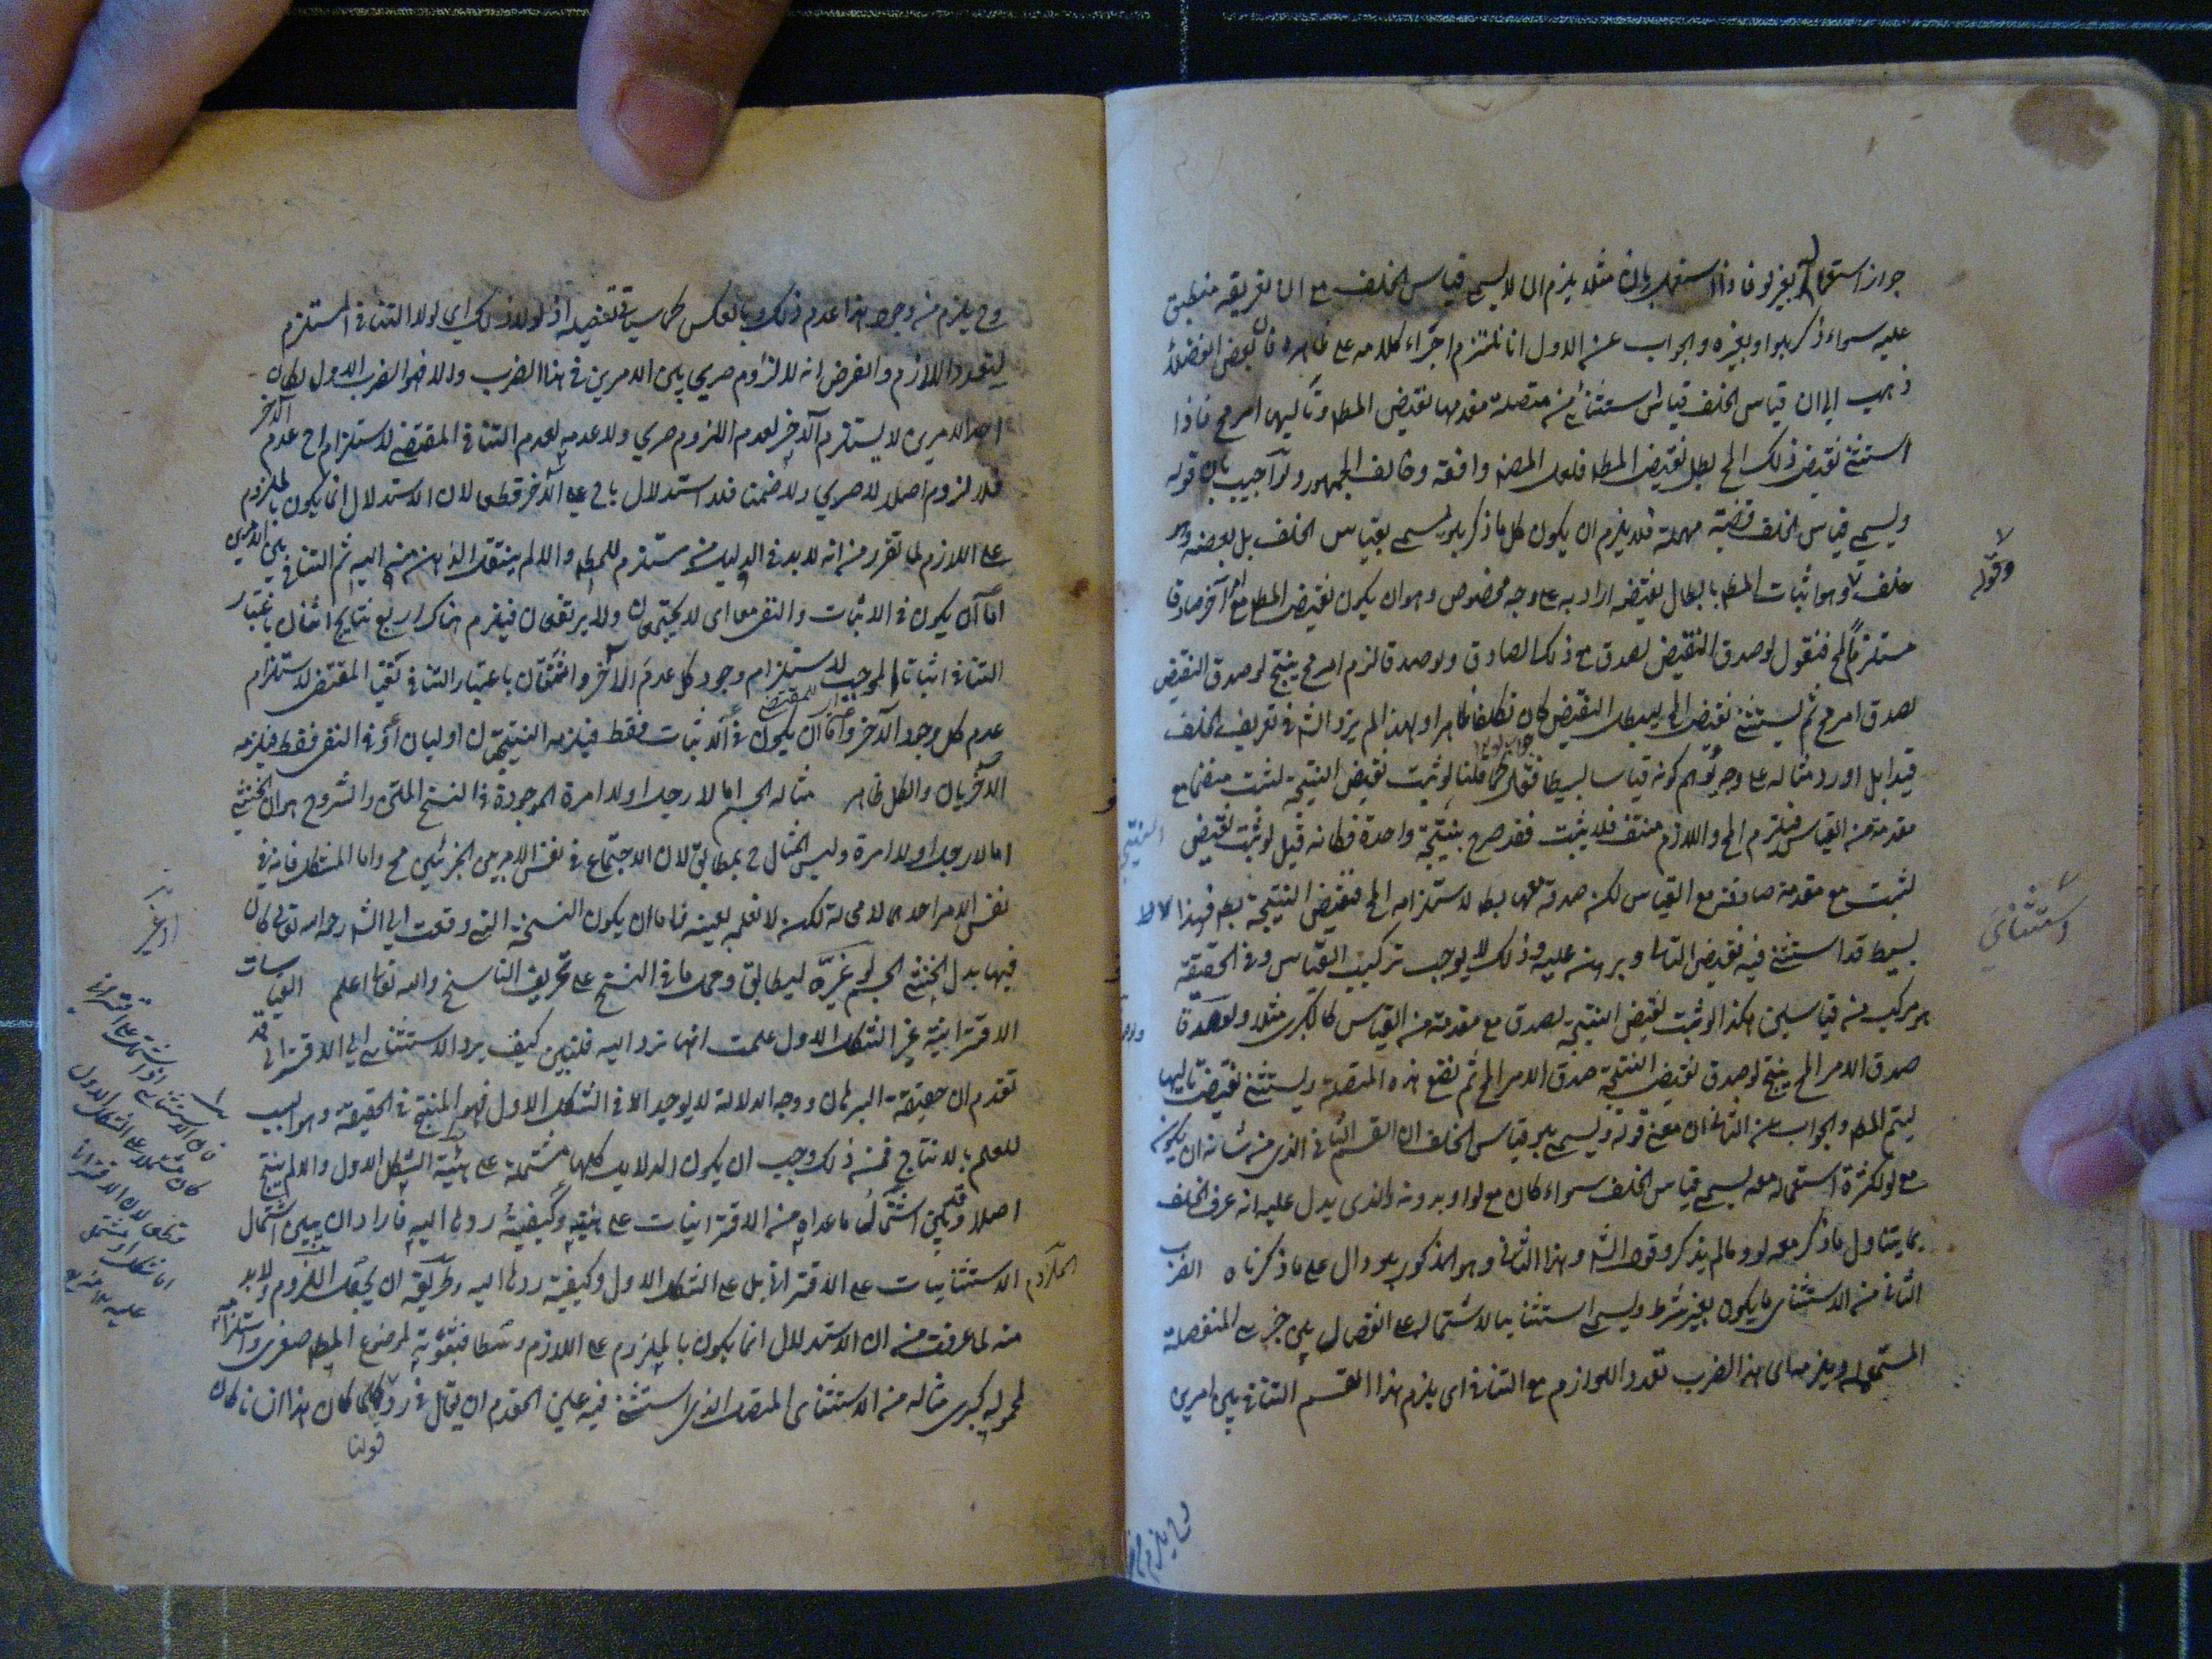 جواز استعماله بغير لو فاذا استعمل بان مثلا يلزم ان لا يسمى قياس الخلف مع ان تعريفه منطبق
عليه سواء ذكر بلو او بغيره والجواب عن الاول انا نلتزم اجراء كلامه على ظاهره فان بعض الفضلاء
ذهب الى ان قياس الخلف قياس استثنائي من متصلة مقدمها نقيض المط وتاليها امر مح فاذا
استثني نقيض ذلك المح بطل نقيض المط فلعل المصنف وافقه وخالف الجمهور ولو اجيب بان قوله
ويسمى قياس الخلف قضية مهملة فلا يلزم ان يكون كل ما ذكر بلو يسمى بقياس الخلف بل بعضه وهو
خلف وهو اثبات المط بابطال نقيضه اراد به على وجه مخصوص وهو ان يكون نقيض المط مع امر آخر صادق
مستلزما لمح فنقول لو صدق النقيض لصدق مع ذلك الصادق ولو صدقا لزم امر مح ينتج لو صدق النقيض
لصدق امر مح ثم يستثنى نقيض المح ليبطل النقيض كان تكلفا ظاهرا ولهذا لم يزد الش في تعريف الخلف
قيدا بل اورد مثاله على وجه يوهم كونه قياسا بسيطا فقال كما قلنا لو ثبت نقيض النتيجة لثبت منضما مع
مقدمة من القياس فيلزم المح واللازم منتف فلا يثبت فقد صرح بنتيجة واحدة فكانه قيل لو ثبت نقيض النتيجة
لثبت مع مقدمة صادقة مع القياس لكن صدقه معها بط لاستلزامه المح فنقيض النتيجة بط فهذا
بسيط قد استثني فيه نقيض التالي وبرهن عليه وذلك لا يوجب تركيب القياس وفي الحقيقة
هو مركب من قياسين هكذا لو ثبت نقيض النتيجة لصدق مع مقدمة من القياس كالكبرى مثلا ولو صدقا
صدق الامر المح ينتج لو صدق نقيض النتيجة صدق الامر المح ثم نضع هذه المتصلة ويستثنى نقيض تاليها
ليتم المط والجواب عن الثاني ان معنى قوله ويسمى بلو قياس الخلف ان القسم الثاني الذي من شانه ان يكون
مع لو لكثرة استعماله معه يسمى قياس الخلف سواء كان مع لو او بدونه والذي يدل عليه انه عرف الخلف
بما يتناول ما ذكر معه لو وما لم يذكر وقول الش وهذا الثاني وهو المذكور بلو دال على ما ذكرناه الضرب
الثاني من الاستثنائي ما يكون بغير شرط ويسمى استثنائيا لاشتماله على انفصال بين جزئي المنفصلة
المستعملة ويلزمه اى هذا الضرب تعدد اللوازم مع التنافي اى يلزم هذا القسم التنافي بين امرين
وقوله
استثنائي
وح يلزم من وجود هذا عدم ذلك وبالعكس كما سياتي تفصيله اذ لولا ذلك اي لولا التنافي المستلزم
لتعدد اللازم والفرض انه لا لزوم صريح بين الامرين في هذا الضرب والا فهو الضرب الاول لكان
احد الامرين لا يستلزم الآخر لعدم اللزوم صريح ولا عدمه لعدم التنافي المقتضي لاستلزام ح عدم الآخر
فلا لزوم اصلا لا صريح ولا ضمنا فلا استدلال باح على الآخر قطعا لان الاستدلال انما يكون بالملزوم
على اللازم لما تقرر من انه لا بد في الدليل من مستلزم للمط والا لم ينتقل الذهن منه اليه ثم التنافي بين الامرين
اما ان يكون في الاثبات والنفي معا اى لا يجتمعان ولا يرتفعان فيلزم هناك اربع نتايج اثنان باعتبار
التنافي اثباتا الموجب لاستلزام وجود كل عدم الآخر واثنتان باعتبار التنافي نفيا المقتضي لاستلزام
عدم كل وجود الآخر واما ان يكون في الاثبات فقط فيلزمه النتيجتان اوليان او في النفي فقط فيلزمه
الاخريان والكل ظاهر مثاله الجسم اما لا رجل او لا امرة الموجودة في النسخ المتن والشروح هو ان الخنثى
اما لا رجل او لا امرة وليس المثال ح بمطابق لان الاجتماع في نفس الامر بين الجزئين مح واما المشكل فانه في
نفس الامر احدهما لا محالة لكنه لا نعلمه بعينه فاما ان يكون النسخة التي وقعت الى الش رحمه الله تعالى كان
فيها بدل الخنثى الجسم او غيره ليطابق وحمل ما في النسخ على تحريف الناسخ والله تعالى اعلم القياسات
الاقترانية غير الشكل الاول علمت انها ترد اليه فلنبين كيف يرد الاستثنائي الى الاقتراني قد
تقدم ان حقيقة البرهان ووجه الدلالة لا يوجد الا في الشكل الاول فهو المنتج في الحقيقة وهو السبب
للعلم بالانتاج فمن ذلك وجب ان يكون الدلايل كلها مشتملة على هيئة الشكل الاول والا لم ينتج
اصلا وقد بين اشتمال ما عداه من الاقترانيات على هيئته وكيفية ردها اليه فاراد ان يبين اشتمال
الاستثنائيات على الاقتراني بل على الشكل الاول وكيفية ردها اليه وطريقه ان يجعل الملزوم ولا بد
منه لما عرفت من ان الاستدلال انما يكون بالملزوم على اللازم وسطا فثبوته لموضوع المط صغرى واستلزامه
لمحموله كبرى مثاله من الاستثنائي المتصل الذي استثني فيه عين المقدم ان يقال في رد كلما كان هذا انسانا كان
قولنا